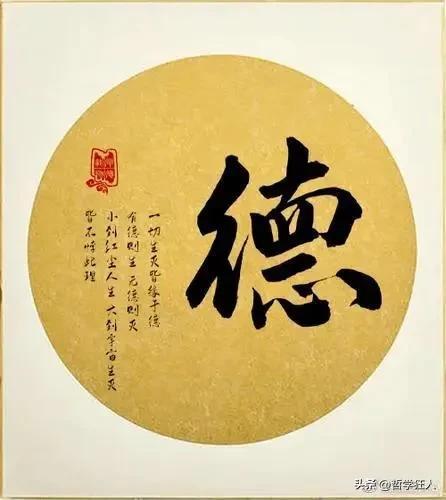 德
一切生灭皆缘于德
有德则生 无德则灭
小到红尘人生 大到宇宙生灭
皆不悖此理
头条@哲学狂人